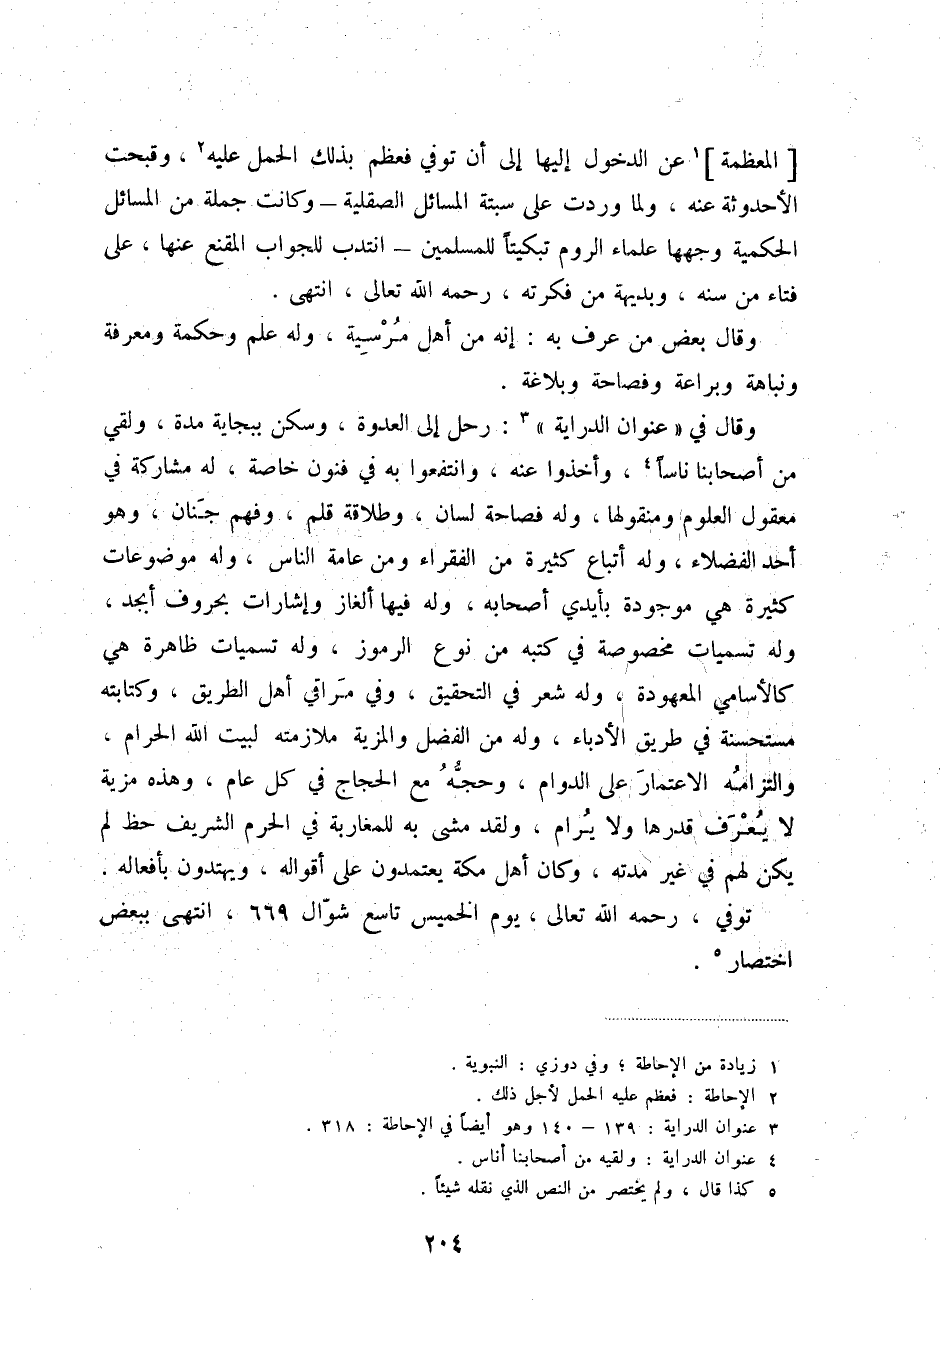 [ المعظمة ]١ عن الدخول إليها إلى أن توفي فعظم بذلك الحمل عليه٢ ، وقبحت
الأحدوثة عنه ، ولما وردت على سبتة المسائل الصقلية – وكانت جملة من المسائل
الحكمية وجهها علماء الروم تبكيتاً للمسلمين – انتدب للجواب المقنع عنها ، على
فتاء من سنه ، وبديهة من فكرته ، رحمه الله تعالى ، انتهى .
وقال بعض من عرف به : إنه من أهل مُرْسِية ، وله علم وحكمة ومعرفة
ونباهة وبراعة وفصاحة وبلاغة .
وقال في « عنوان الدراية »٣ : رحل إلى العدوة ، وسكن ببجاية مدة ، ولقي
من أصحابنا ناساً٤ ، وأخذوا عنه ، وانتفعوا به في فنون خاصة ، له مشاركة في
معقول العلوم ومنقولها ، وله فصاحة لسان ، وطلاقة قلم ، وفهم جَنان ، وهو
أحد الفضلاء ، وله أتباع كثيرة من الفقراء ومن عامة الناس ، وله موضوعات
كثيرة هي موجودة بأيدي أصحابه ، وله فيها ألغاز وإشارات بحروف أبجد ،
وله تسميات مخصوصة في كتبه من نوع الرموز ، وله تسميات ظاهرة هي
كالأسامي المعهودة ، وله شعر في التحقيق ، وفي مَراقي أهل الطريق ، وكتابته
مستحسنة في طريق الأدباء ، وله من الفضل والمزية ملازمته لبيت الله الحرام ،
والتزامُه الاعتمارَ على الدوام ، وحجُّهُ مع الحجاج في كل عام ، وهذه مزية
لا يُعْرَف قدرها ولا يُرام ، ولقد مشى به للمغاربة في الحرم الشريف حظ لم
يكن لهم في غير مدته ، وكان أهل مكة يعتمدون على أقواله ، ويهتدون بأفعاله .
توفي ، رحمه الله تعالى ، يوم الخميس تاسع شوّال ٦٦٩ ، انتهى ببعض
اختصار٥ .
١ زيادة من الإحاطة ؛ وفي دوزي : النبوية .
٢ الإحاطة : فعظم عليه الحمل لأجل ذلك .
٣ عنوان الدراية : ١٣٩ – ١٤٠ وهو أيضاً في الإحاطة : ٣١٨ .
٤ عنوان الدراية : ولقيه من أصحابنا أناس .
٥ كذا قال ، ولم يختصر من النص الذي نقله شيئاً .
٢٠٤